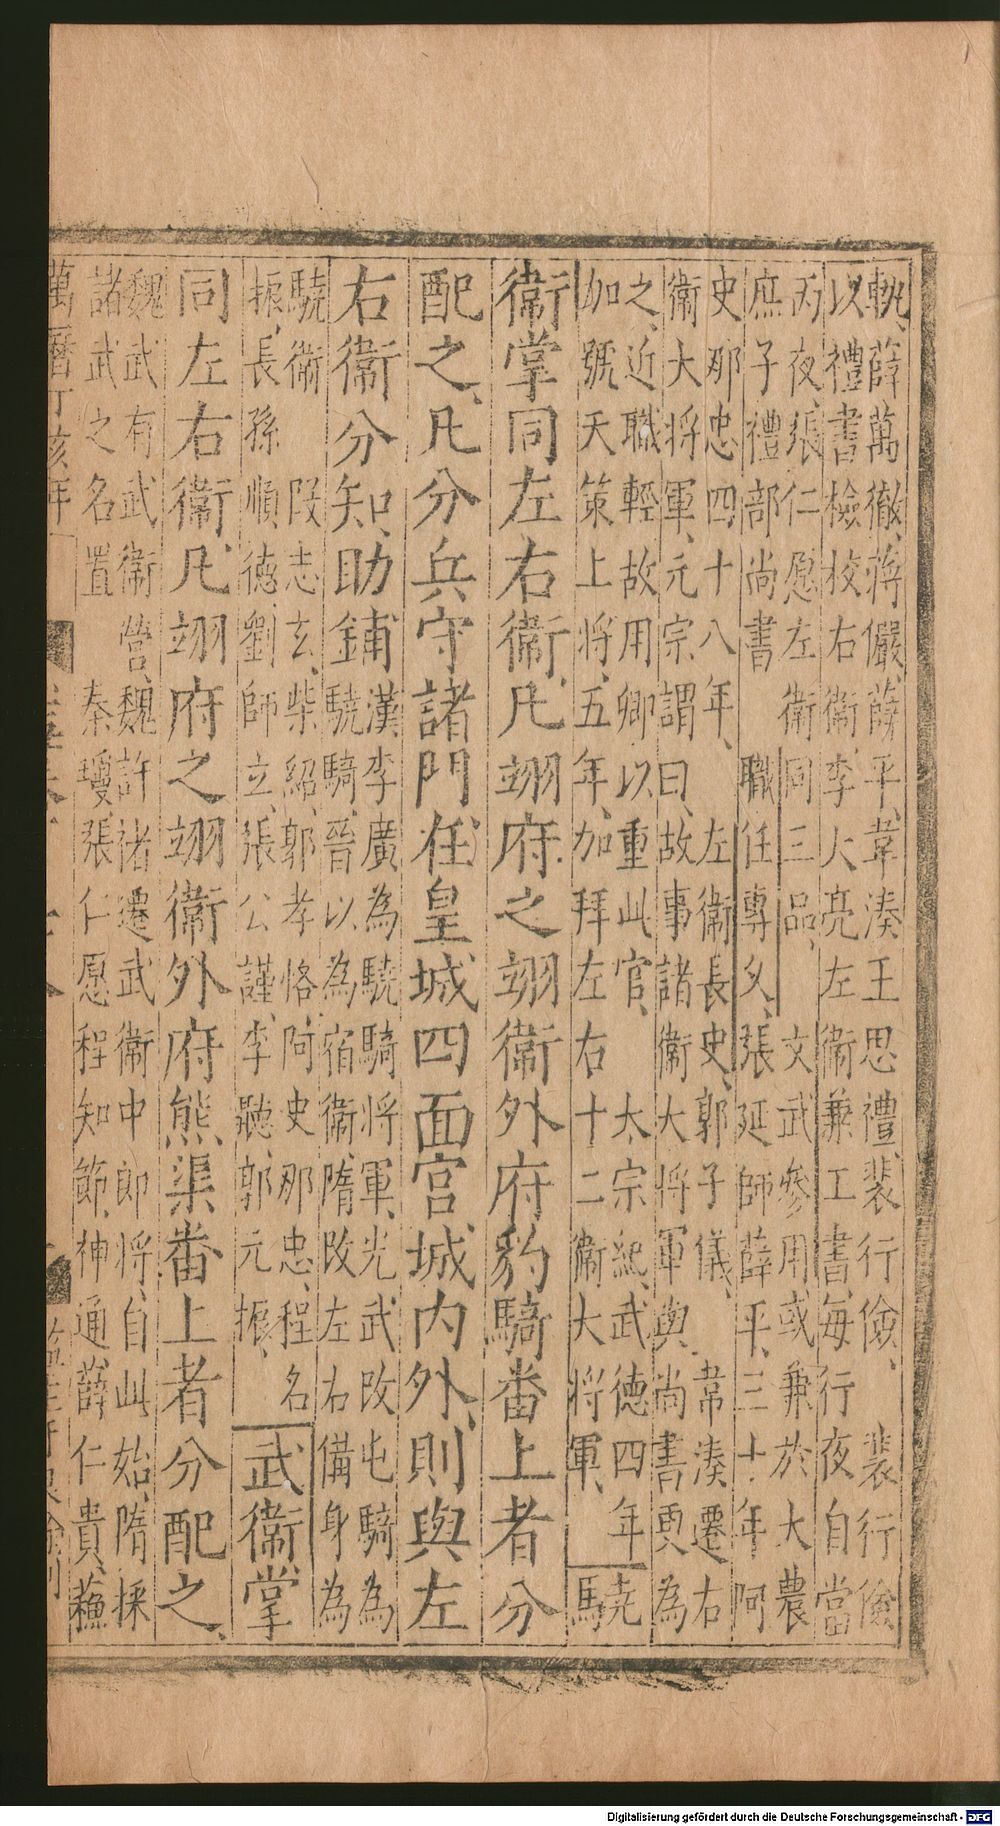 軼、薛萬徹、蔣儼、薛平、韋湊、王思禮、裴行儉、 裴行儉
以禮書檢校右衛、李大亮左衛兼工書、每行夜自當
丙夜、張仁愿左衛同三品、 文武參用或兼於大農
庶子禮部尚書 職任專久、張延師薛平、三十年阿
史那忠四十八年、 左衛長史、郭子儀、 韋湊遷右
衛大将軍、元宗謂曰、故事諸衛大将軍與尚書更為
之、近職輕故用卿以重此官、 太宗紀武德四年 尭
加號天策上将、五年、加拜左右十二衛大将軍、 馬
衛掌同左右衛、凡翊府之翊衛外府豹騎番上者分
配之、凡分兵守諸門、任皇城四面宮城內外、則與左
右衛分知、助鋪
漢李廣為驍騎将軍、光武改屯騎為
驍騎、晉以為宿衛、隋改左右備身為
驍衛 段志玄、柴紹、郭孝恪、阿史那忠、程名
振、長孫順德、劉師立、張公謹、李聽、郭元振、
武衛掌
同左右衛、凡翊府之翊衛外府熊渠番上者分配之、
魏武有武衛營、魏許褚遷武衛中郎将、自此始、隋採
諸武之名置 秦瓊、張仁愿程知節、神通、薛仁貴、蘓
萬曆丁亥年
Digitalisierung gefördert durch die Deutsche Forschungsgemeinschaft - DFG